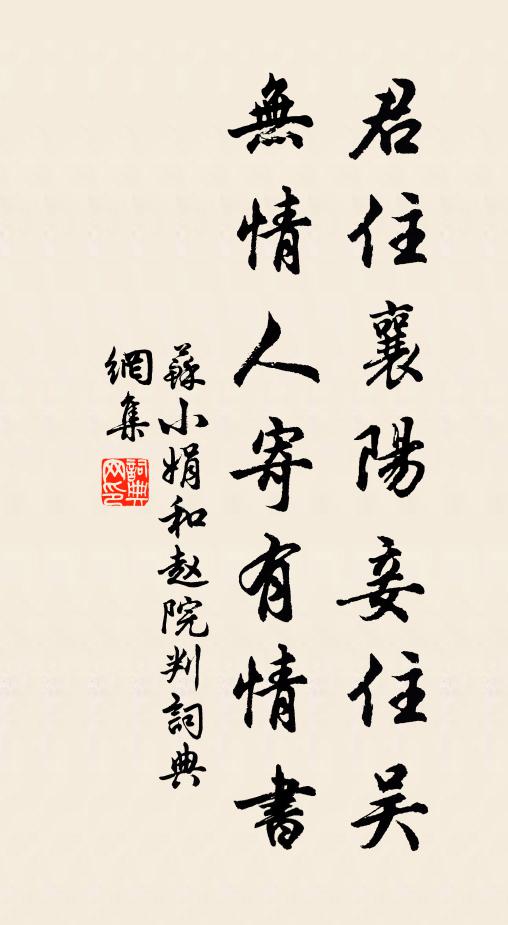 君住襄陽妾住吴
無情人寄有情書
蘇小娟和赵院判詞典
網集
詞典网印